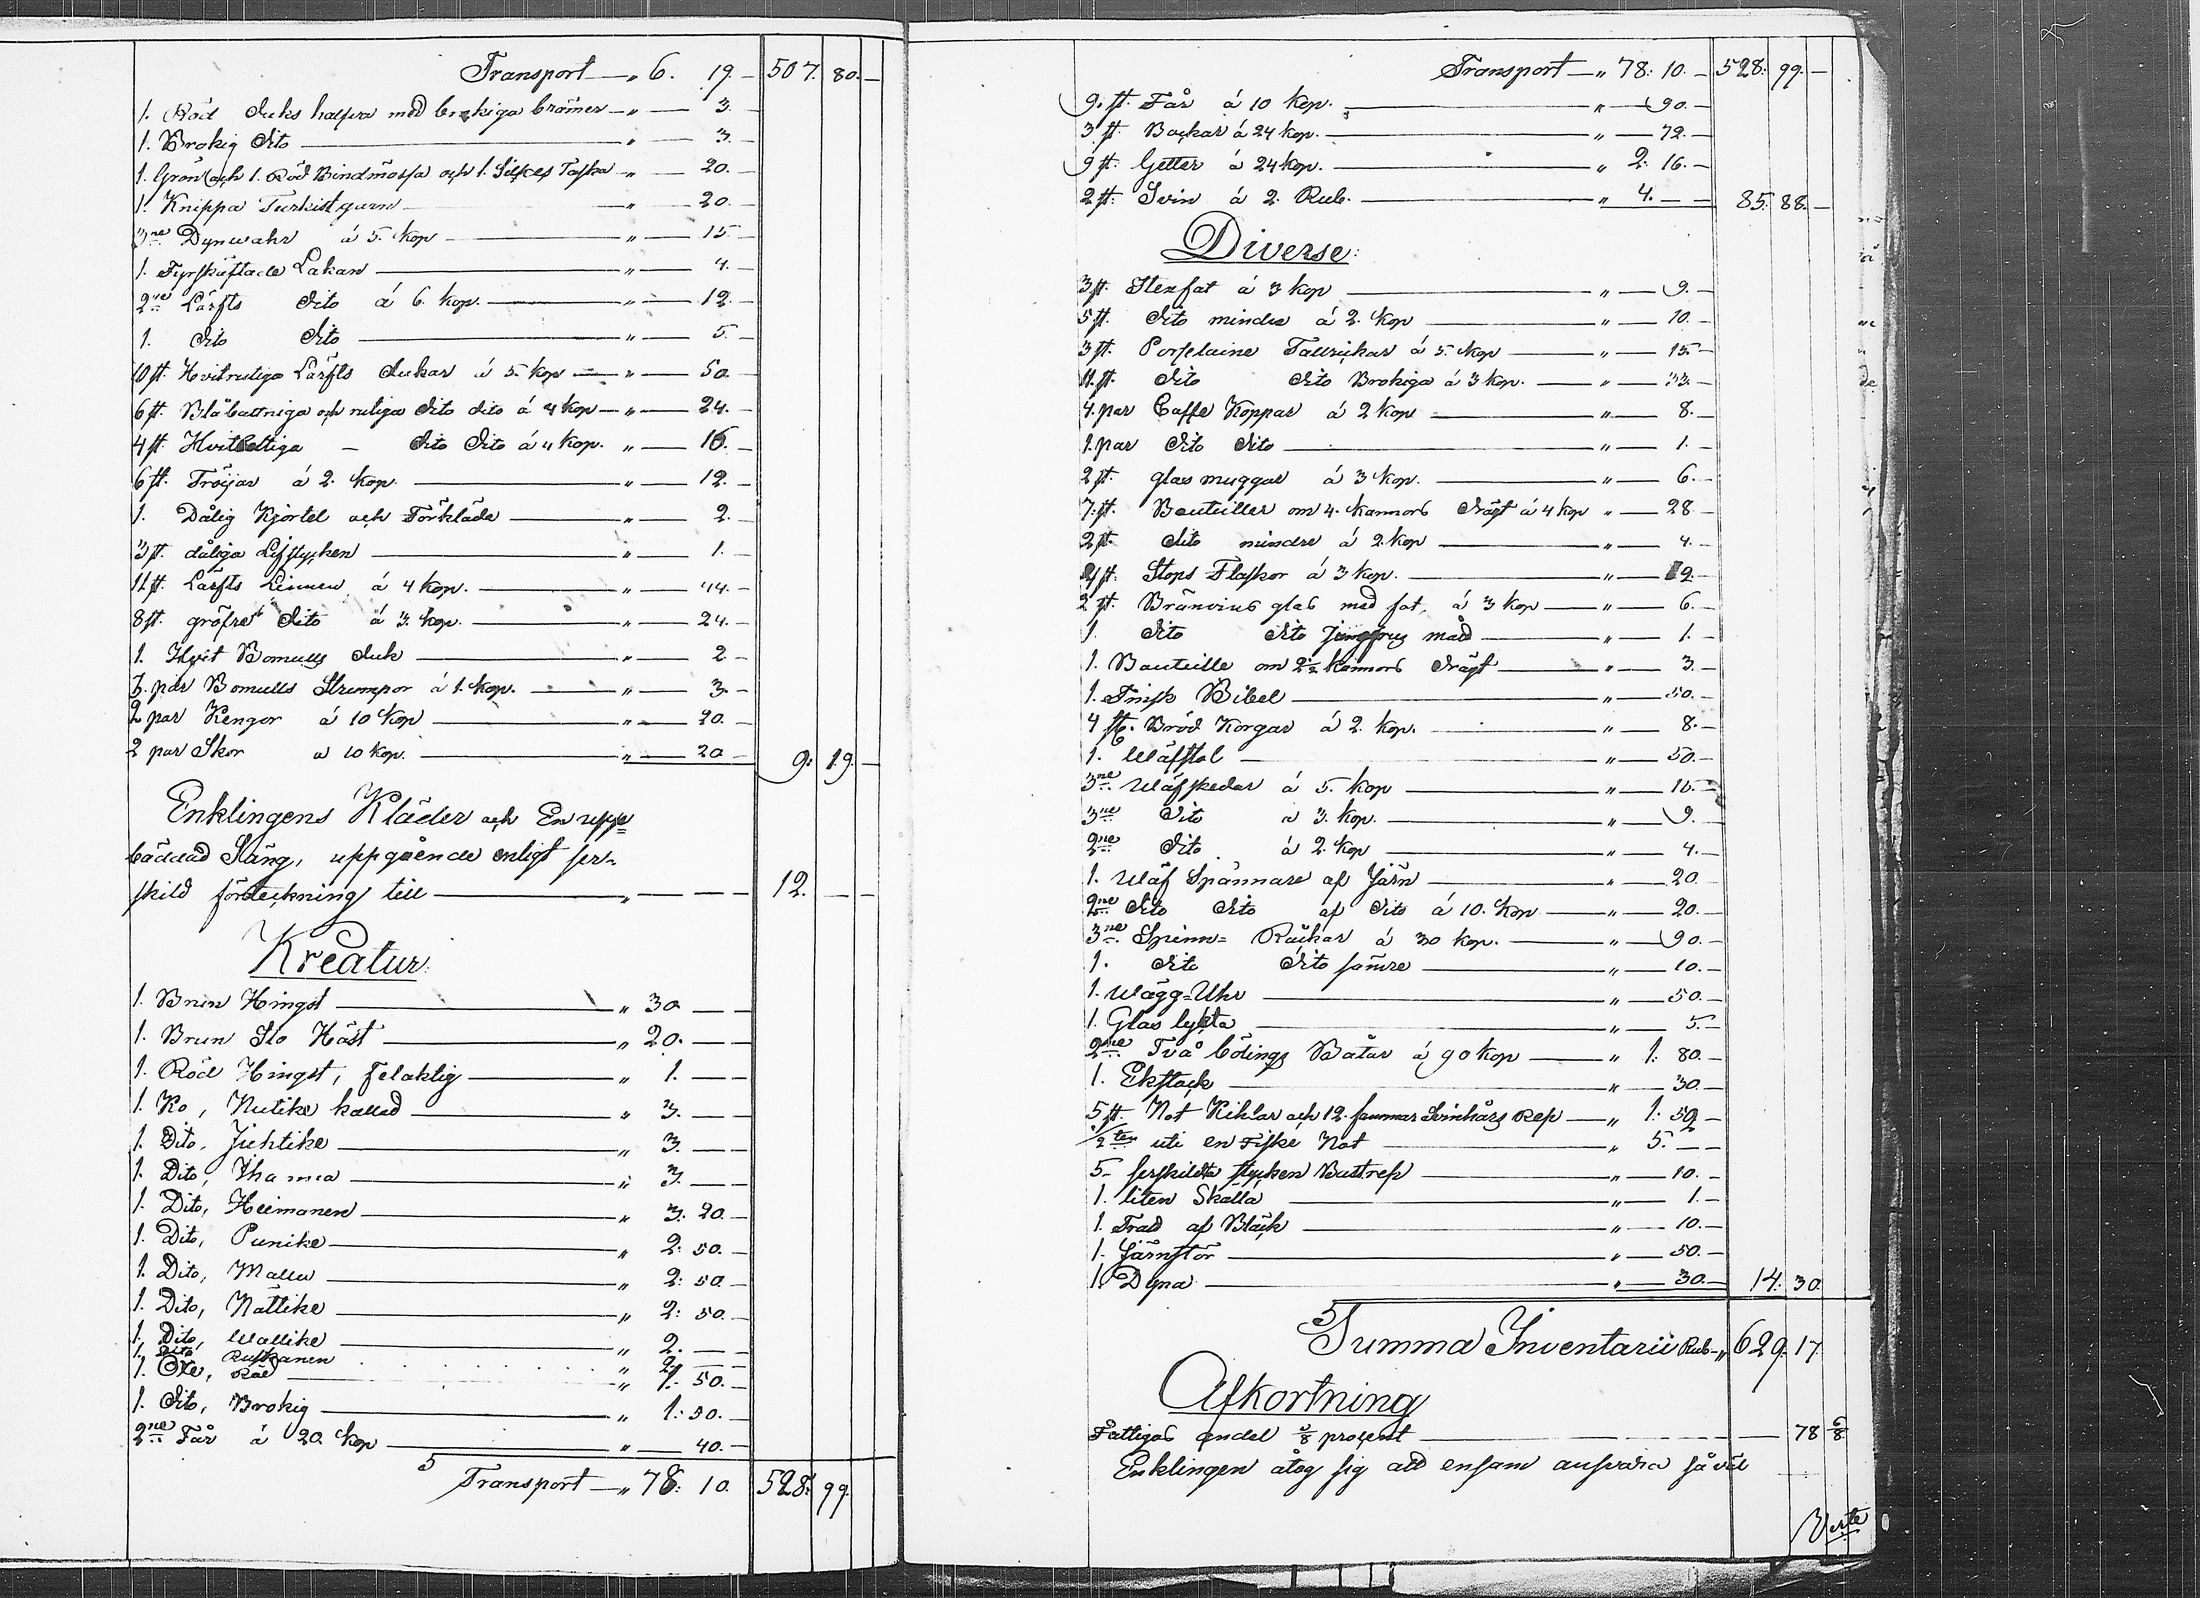 Transport — „ 6. 19. — 507. 80. —
1. Röd duks halfva med brokiga brämer — „ — 3. —
1. Brokig dito — „ — 3. —
1. Grön och 1. Röd Bindmössa och 1. Silkes Taska — „ — 20. —
1. Knippa Turkist garn — „ — 20. —
3ne Dynwahr á 5. kop — „ — 15 —
1. Fyrskäftade Lakan — „ — 4. —
2ne Lärfts dito á 6 kop. — „ — 12. —
1. dito dito — „ — 5. —
10 st. Hvitrutiga Lärfts dukar á 5. kop — „ — 50. —
6 st. Blåbattniga och rutiga dito dito á 4 kop — „ — 24. —
4 st Hvitbottiga — dito dito á 4 kop. „ — 16. —
6 st. Tröijar á 2. kop. — „ — 12. —
1. Dålig Kjortel och Förkläde — „ — 2. —
3 st. dåliga Lifstycken — „ — 1. —
11 st. Lärfts Linnen á 4 kop. — „ — 44. —
8 st. gröfre dito á 3. kop. — „ — 24. —
1. Hvit Bomulls duk — „ — 2 —
3. par Bomulls Strumpor á 1. kop. — „ — 3. —
2 par Kengor á 10 kop — „ — 20. —
2 par Skor a 10 kop. — „ — 20 — 9. 19. —
Enklingens Kläder och En upp=
bäddad Säng, uppgående enligt ser-
skild förteckning till — „ — — — 12. — —
Kreatur:
1. Brun Hingst — „ 30 — —
1. Brun Sto Häst — „ 20. — —
1. Röd Hingst, felaktig — „ 1. — —
1. Ko, Nutike kallad — „ 3. — —
1. Dito, Jichtike — „ 3. — —
1. Dito, Thamea — „ 3. — —
1. Dito, Heimonen — „ 3. 20. —
1. Dito, Punike — „ 2. 50. —
1. Dito, Mallu — „ 2: 50 —
1. Dito, Nättike — „ 2: 50. —
1. Dito, Wallike — „ 2. — —
1. dito Ruskanen „ 2. — —
1. Oxe, Röd — „ 1. 50. —
1. dito, Brokig — „ 1: 50. —
2ne Får á 20. kop — „ — 40. —
Transport — „ 78: 10. 528. 99.
Transport — „ 78: 10. — 528. 99. —
9. st. Får á 10 kop. — „ — 90. —
3 st. Backar á 24 kop. — „ — 72. —
9 st. Getter á 24 kop. — „ 2. 16. —
2 st. Svin á 2. Rub. — „ 4. — — 85. 88. —
Diverse:
3 st. Stenfat á 3 kop — „ — 9. —
5 st. dito mindre á 2. kop — „ — 10. —
3 st. Porslaine Tallrickar á 5. kop — „ — 15. —
11. st. dito dito Brokiga á 3 kop. — „ — 33. —
4. par Caffe Koppar á 2 kop — „ — 8. —
1. par dito dito — „ — 1. —
2 st. glas muggar á 3 kop. — „ — 6. —
7. st. Bouteiller om 4. kannors drägt á 4 kop „ — 28 —
2 st. dito mindre á 2 kop — „ — 4. —
4 st. Stops Flaskor á 3 kop. — „ — 12. —
2 st. Bränvins glas med fot, á 3 kop — „ — 6. —
1. dito dito Jungfrus mått — „ — 1. —
1. Bouteille om 2½ kannors drägt — „ — 3. —
1. Finsk Bibel — „ — 50. —
4 st. Bröd Korgar á 2. kop. — „ — 8. —
1. Wäfstol — „ — 50. —
3ne Wäfskedar á 5. kop — „ — 15. —
3ne Dito á 3. kop. — „ — 9. —
2ne dito á 2. kop — „ — 4. —
1. Wäf Spännare af Järn — „ — 20. —
2ne dito dito af dito á 10. kop — „ — 20. —
3ne Spinn= Råckar á 30 kop. — „ — 90. —
1. dito dito sämre — „ — 10. —
1. Wägg=Uhr — „ — 50. —
1. Glas lykta — „ — 5. —
2ne Två bölings Båtar á 90 kop — „ 1: 80. —
1. Ekstock — „ — 30. —
5 st. Not Kihlar och 12. famnar Svinhårs Rep — „ 1. 50 —
½ten uti en Fiske Not — „ 5. — —
5. serskildta stycken Bastrep — „ — 10. —
1. liten Skälla — „ — 1. —
1. Trad af Bläck — „ — 10. —
1. Järnstör — „ — 50. —
1. Dyna — „ — 30. — 14. 30
Summa Inventarii Rub — „ 629. 17
Afkortning
Fattigas andel ⅛ procent — 78 6/8
Enklingen åtog sig att ensam ansvara så väl
Verte